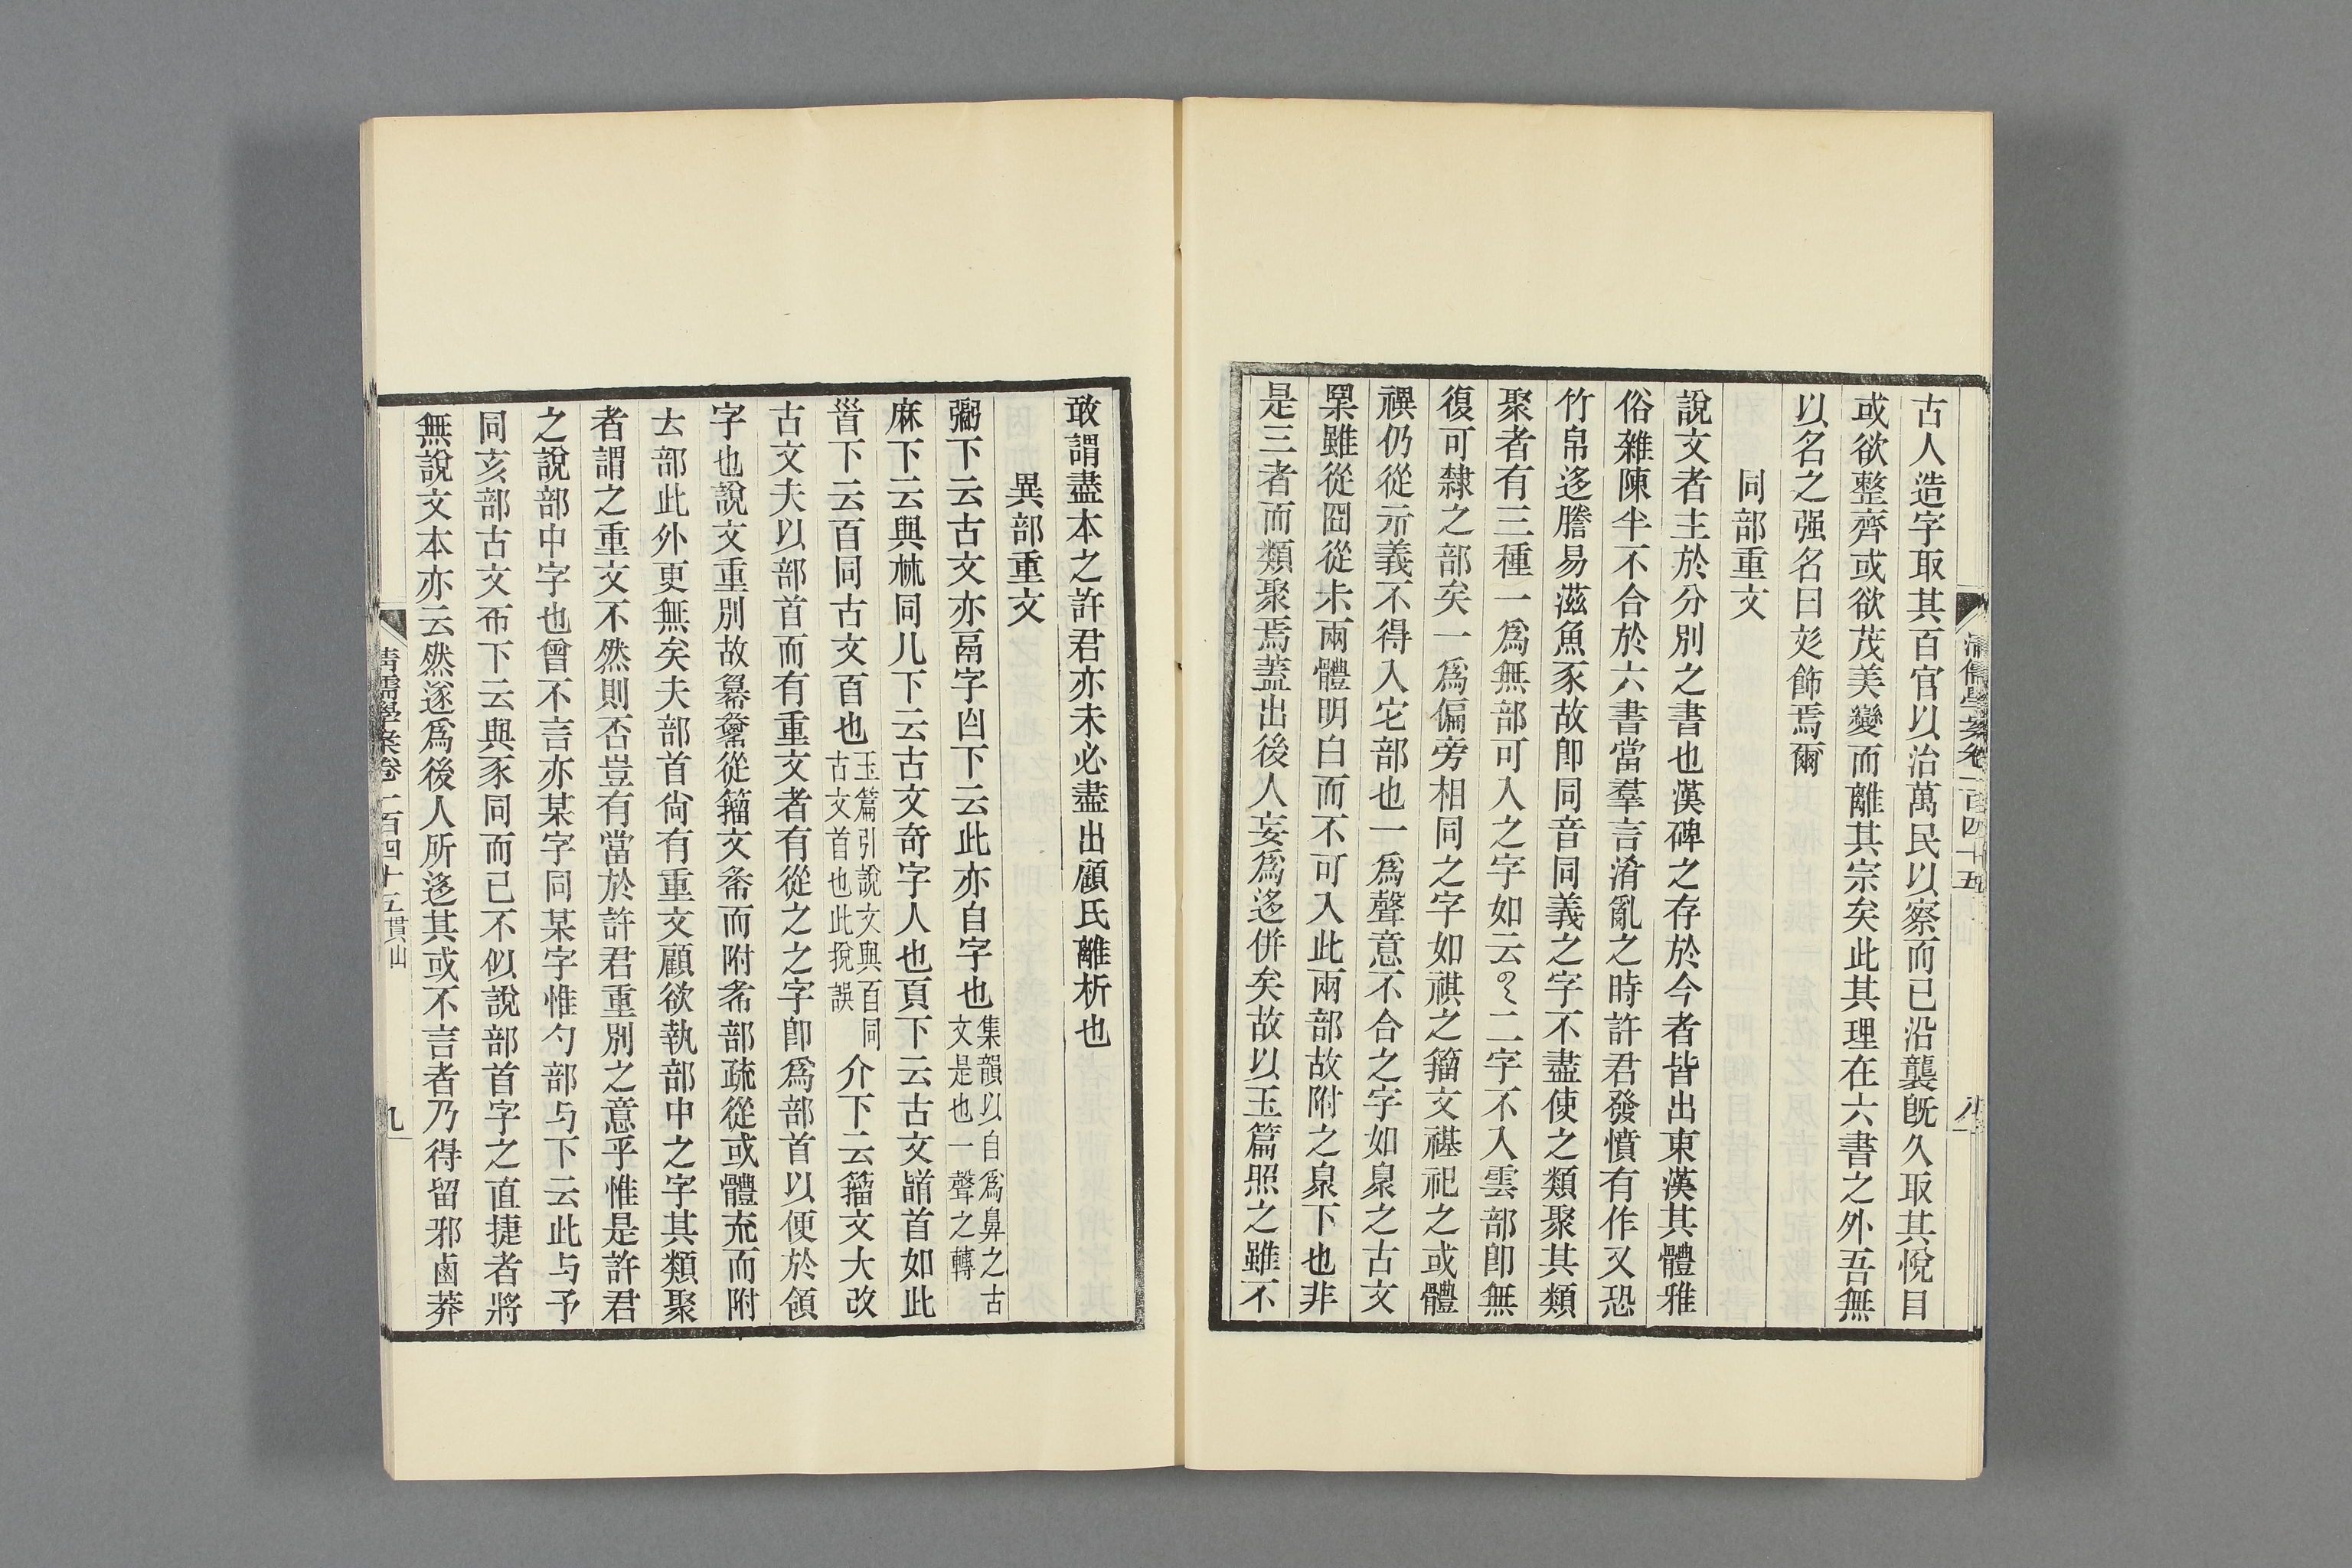 古人造字取其百官以治萬民以察而已沿襲旣久取其悅目
或欲整齊或欲茂美變而離其宗矣此其理在六書之外吾無
以名之强名曰彣飾焉爾
同部重文
說文者主於分別之書也漢碑之存於今者皆出東漢其體雅
俗雜陳半不合於六書當羣言淆亂之時許君發憤有作又恐
竹帛迻謄易滋魚豕故卽同音同義之字不盡使之類聚其類
聚者有三種一爲無部可入之字如云二字不入雲部卽無
復可隸之部矣一爲偏旁相同之字如祺之籀文禥祀之或體
禩仍從示義不得入它部也一爲聲意不合之字如㮚之古文
㮚雖從囧從木兩體明白而不可入此兩部故附之㮚下也非
是三者而類聚焉蓋出後人妄爲迻併矣故以玉篇照之雖不
清儒學案卷二百四十五
八
敢謂盡本之許君亦未必盡出顧氏離析也
異部重文
䰜下云古文亦鬲字白下云此亦自字也集韻以自爲鼻之古文是也一聲之轉
麻下云與𣏟同儿下云古文奇字人也頁下云古文䭫首如此
𦣻下云百同古文百也玉篇引說文與百同古文首也此挩誤 介下云籀文大改
古文夫以部首而有重文者有從之之字卽爲部首以便於領
字也說文重別故從籀文而附部疏從或體㐬而附
𠫓部此外更無矣夫部首尙有重文顧欲執部中之字其類聚
者謂之重文不然則否豈有當於許君重別之意乎惟是許君
之說部中字也曾不言亦某字同某字惟勺部与下云此与予
同亥部古文𠀅下云與豕同而已不似說部首字之直捷者將
無說文本亦云然遂爲後人所迻其或不言者乃得留邪鹵莽
清儒學案卷二百四十五 貫山
九